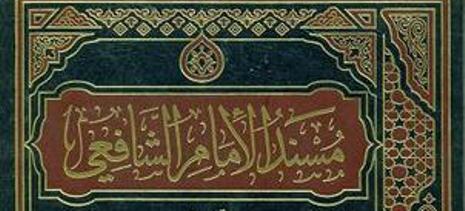 مُسْنَدُ الإمَامِ الشَّافِعِيِّ